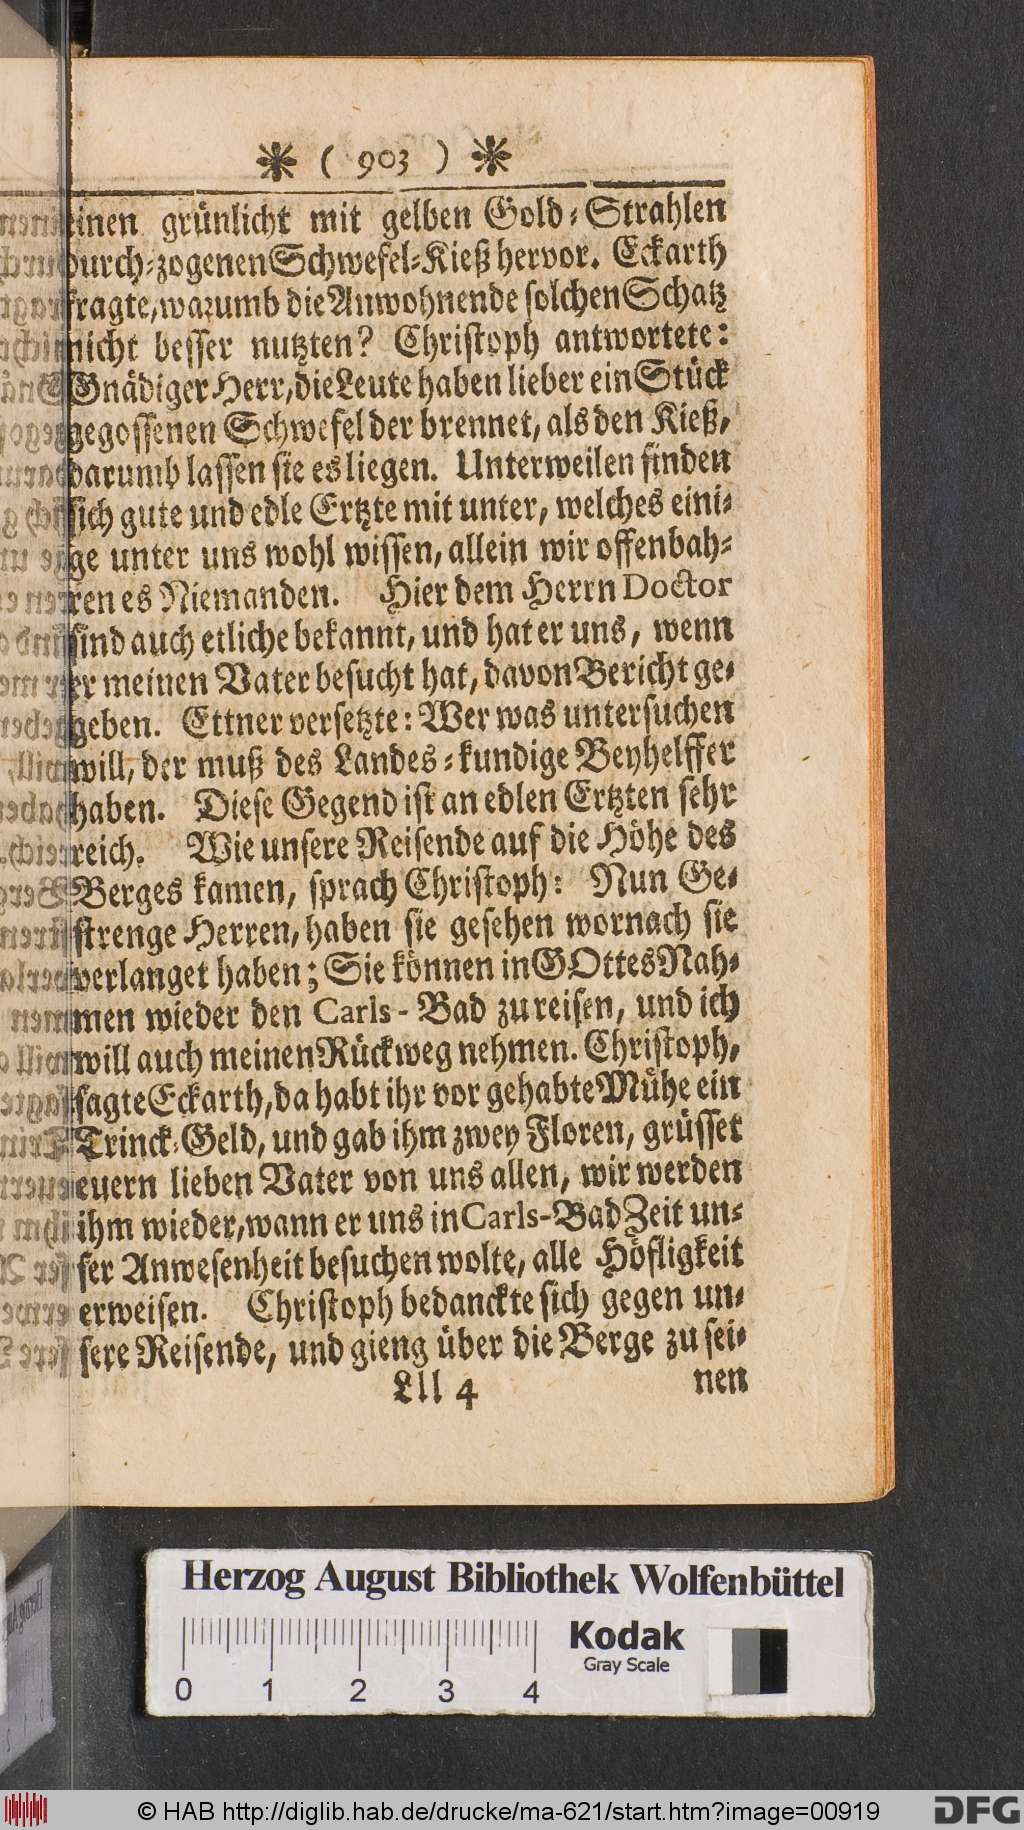 ❋ ( 903 ) ❋
einen grünlicht mit gelben Gold-Strahlen
durch-zogenen Schwefel-Kieß hervor. Eckarth
fragte, warumb die Anwohnende solchen Schatz
nicht besser nutzten? Christoph antwortete:
Gnädiger Herr, die Leute haben lieber ein Stück
gegossenen Schwefel der brennet, als den Kieß,
darumb lassen sie es liegen. Unterweilen finden
sich gute und edle Ertzte mit unter, welches eini-
ge unter uns wohl wissen, allein wir offenbah-
ren es Niemanden. Hier dem Herrn Doctor
sind auch etliche bekannt, und hat er uns, wenn
er meinen Vater besucht hat, davon Bericht ge-
geben. Ettner versetzte: Wer was untersuchen
will, der muß des Landes-kundige Beyhelffer
haben. Diese Gegend ist an edlen Ertzten sehr
reich. Wie unsere Reisende auf die Höhe des
Berges kamen, sprach Christoph: Nun Ge-
strenge Herren, haben sie gesehen wornach sie
verlanget haben; Sie können in GOttes Nah-
men wieder den Carls-Bad zu reisen, und ich
will auch meinen Rückweg nehmen. Christoph,
sagte Eckarth, da habt ihr vor gehabte Mühe ein
Trinck-Geld, und gab ihm zwey Floren, grüsset
euern lieben Vater von uns allen, wir werden
ihm wieder, wann er uns in Carls-Bad Zeit un-
ser Anwesenheit besuchen wolte, alle Höfligkeit
erweisen. Christoph bedanckte sich gegen un-
sere Reisende, und gieng über die Berge zu sei-
Lll 4 nen
Herzog August Bibliothek Wolfenbüttel
Kodak
Gray Scale
0 1 2 3 4
© HAB http://diglib.hab.de/drucke/ma-621/start.htm?image=00919
DFG